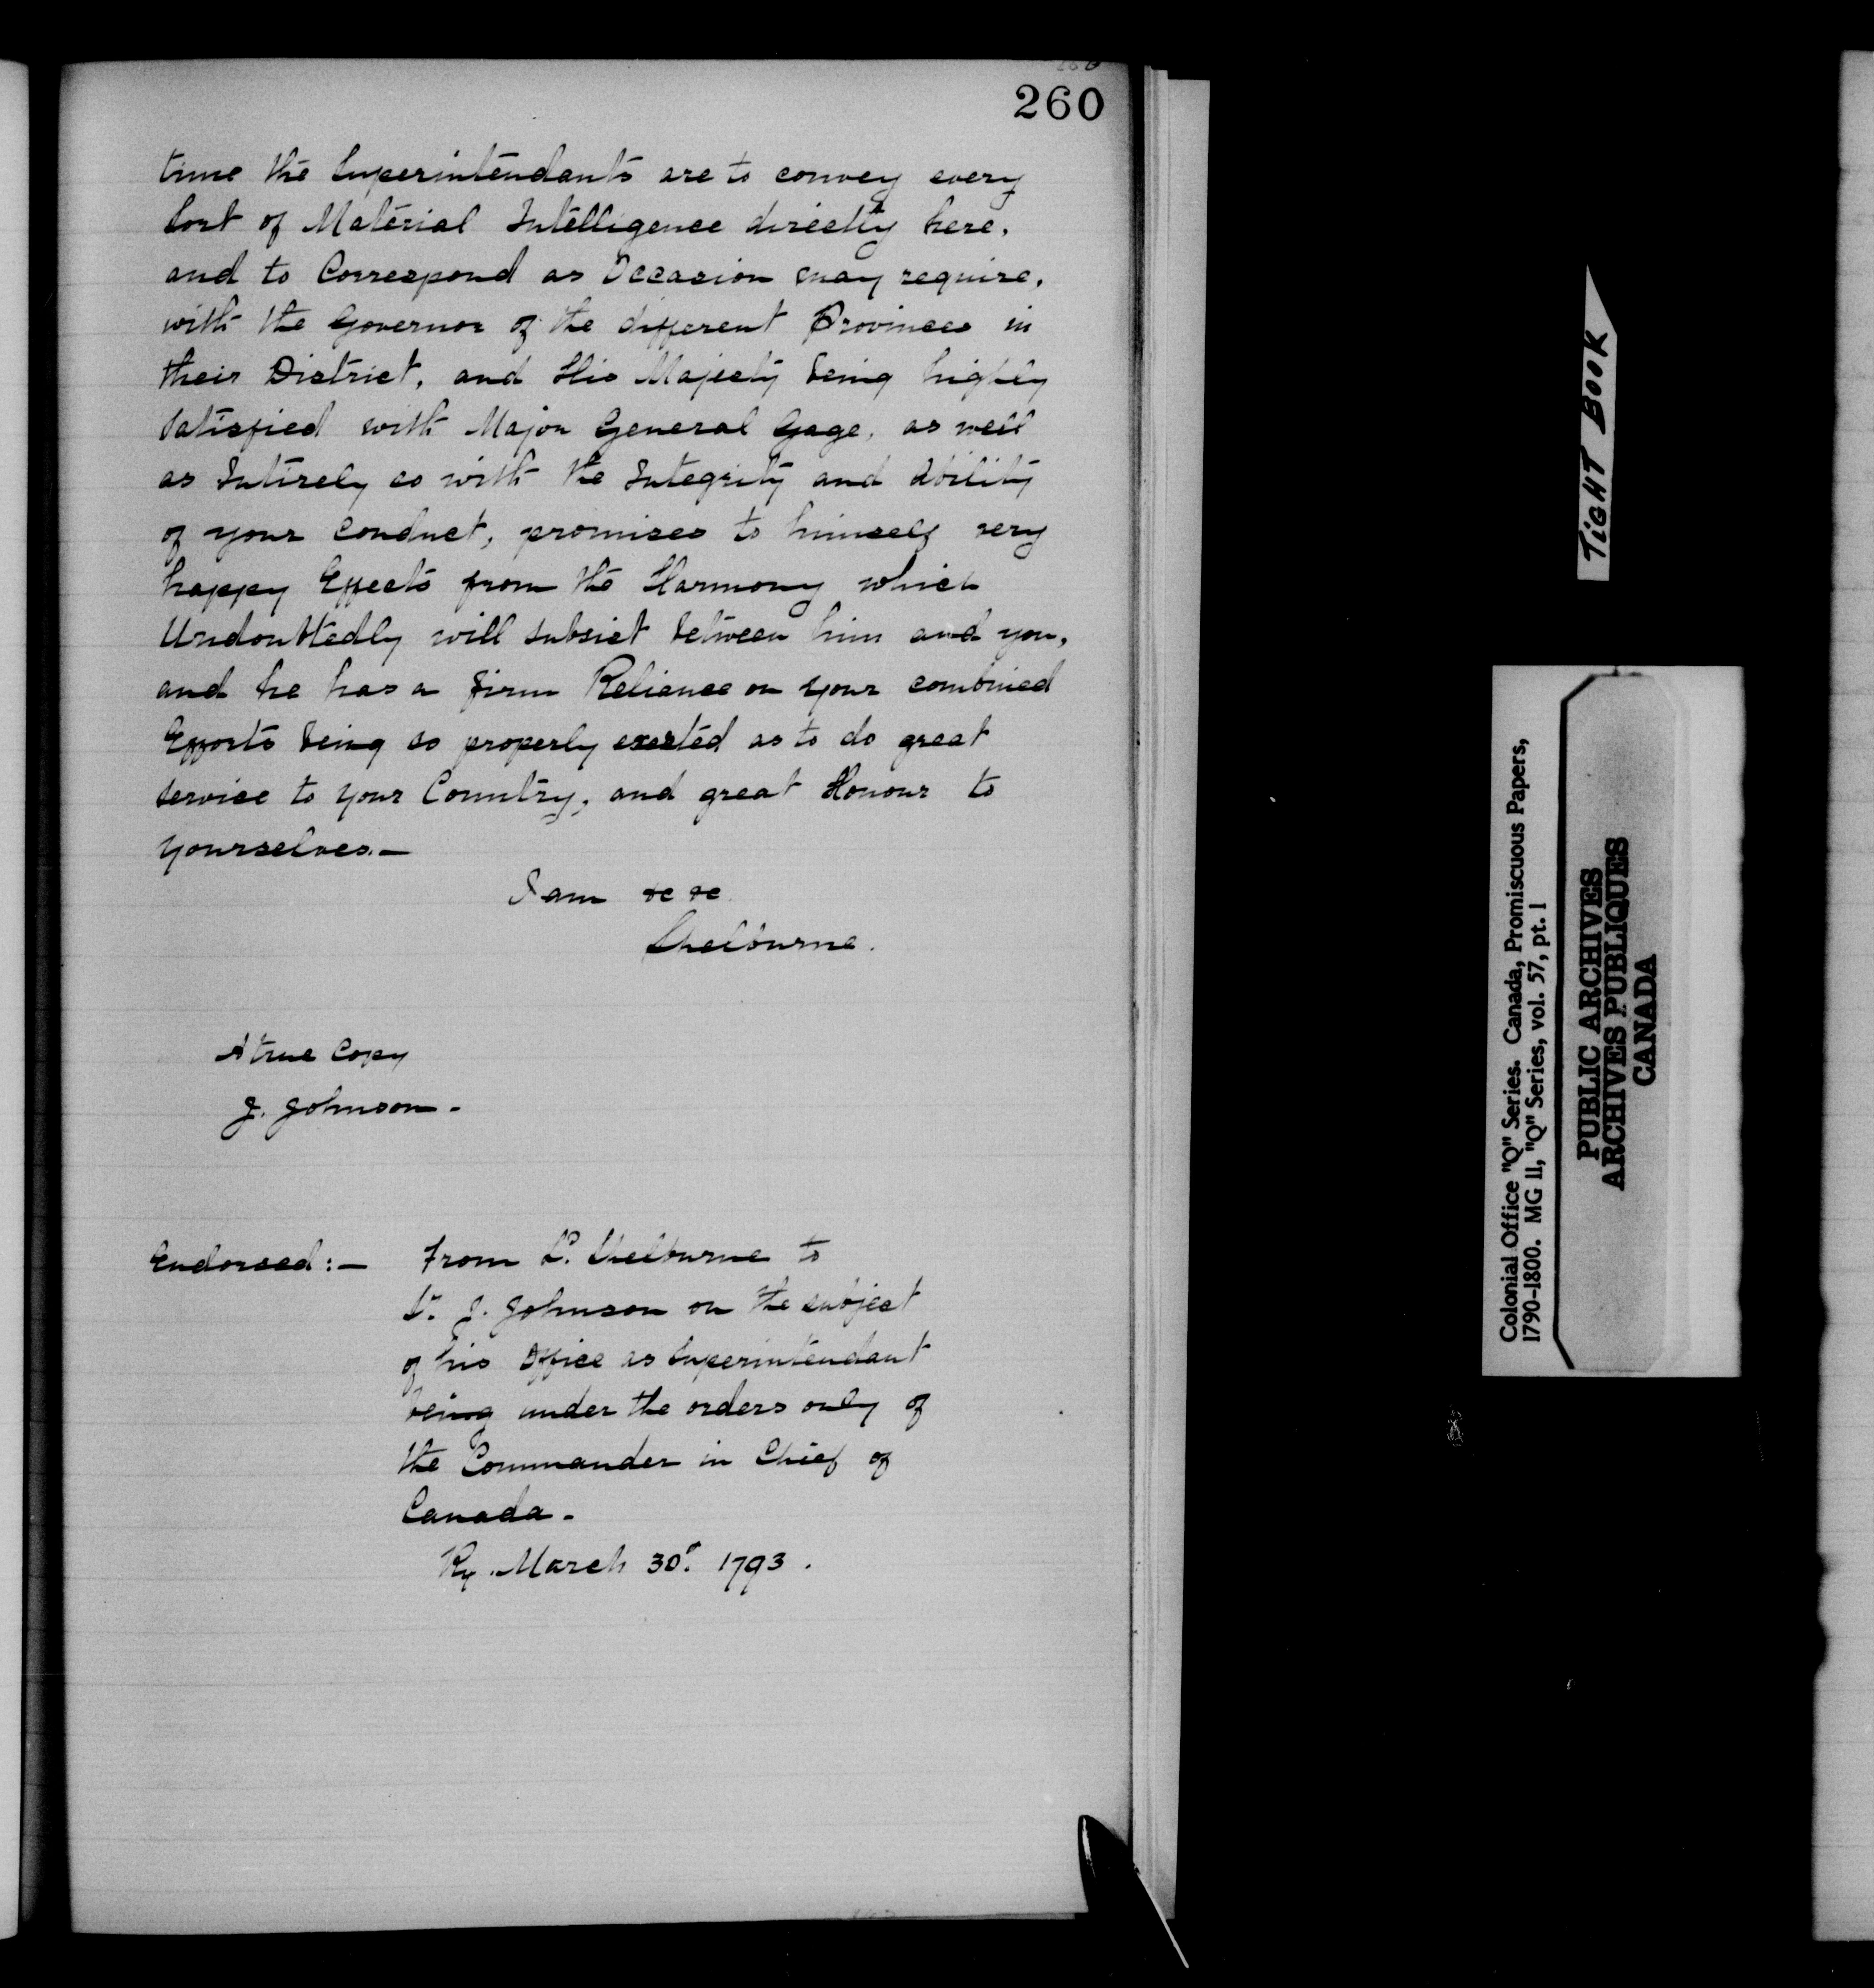 260
time the Superintendants are to convey every
Sort of Material Intelligence directly here,
and to Correspond as Occasion may require,
with the Governor of the different Provinces in
their District, and His Majesty being highly
Satisfied with Major General Gage, as well
as Intirely so with the Integrity and Ability
of your Conduct, promises to himself very
happy Effects from the Harmony which
Undoubtedly will subsist between him and you,
and he has a firm Reliance on your combined
Efforts being so properly exerted as to do great
service to your Country, and great Honour to
yourselves.—
I am &c &c
Shelburne.
A true Copy
J. Johnson.
Endorsed:— From Ld. Shelburne to
Sr. J. Johnson on the subject
of his Office as Superintendant
being under the orders only of
the Commander in Chief of
Canada.
March 30th. 1793.
TIGHT BOOK
Colonial Office "Q" Series. Canada, Promiscuous Papers,
1790-1800. MG 11, "Q" Series, vol. 57, pt. 1
PUBLIC ARCHIVES
ARCHIVES PUBLIQUES
CANADA